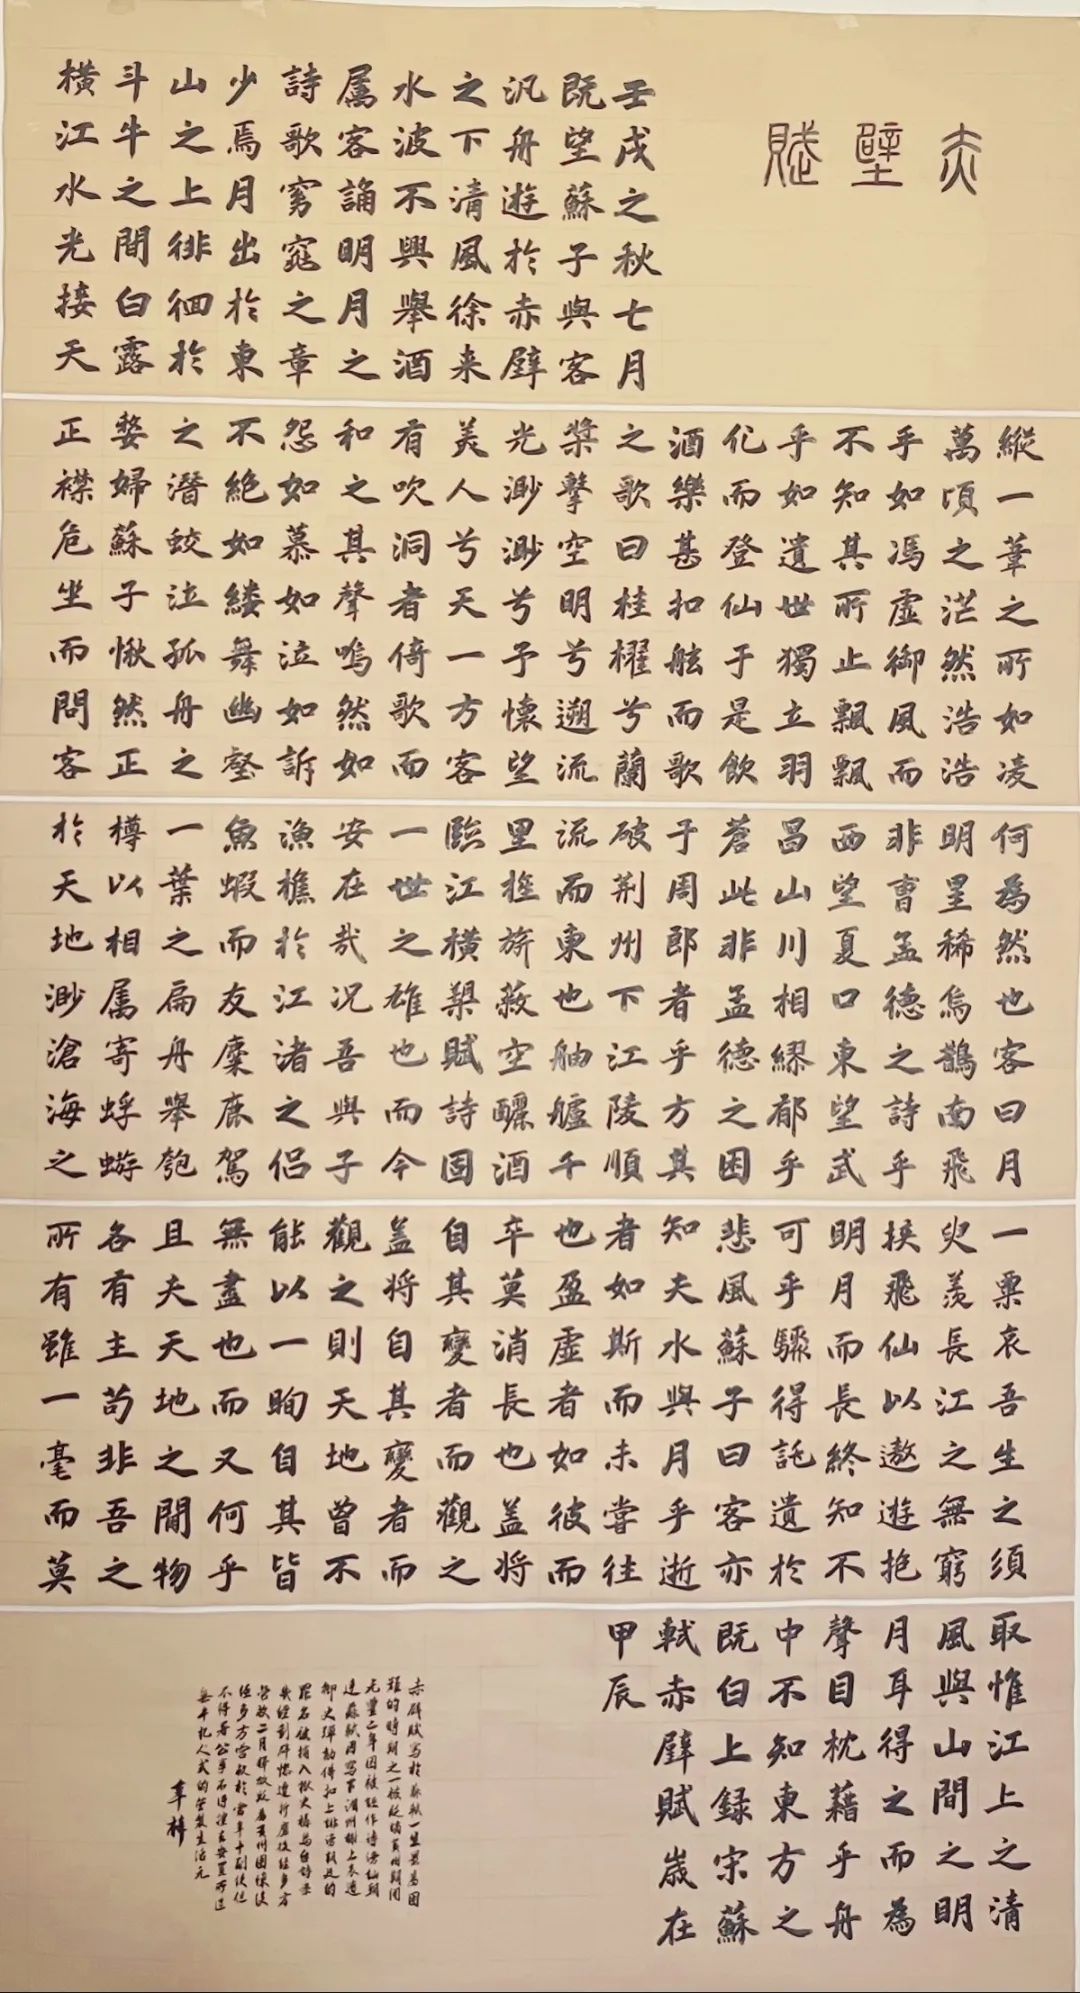 赤壁賦
壬戌之秋七月
既望蘇子與客
汎舟遊於赤壁
之下清風徐来
水波不興舉酒
属客誦明月之
詩歌窈窕之章
少焉月出於東
山之上徘徊於
斗牛之間白露
橫江水光接天
縱一葦之所如凌
萬頃之茫然浩浩
乎如馮虛御風而
不知其所止飄飄
乎如遺世獨立羽
化而登仙于是飲
酒樂甚扣舷而歌
之歌曰桂櫂兮蘭
槳擊空明兮遡流
光渺渺兮予懷望
美人兮天一方客
有吹洞者倚歌而
和之其聲嗚然如
怨如慕如泣如訴
不絶如縷舞幽壑
之潛蛟泣孤舟之
嫠婦蘇子愀然正
正襟危坐而問客
何為然也客曰月
明星稀烏鵲南飛
非曹孟德之詩乎
西望夏口東望武
昌山川相繆郁乎
蒼此非孟德之困
于周郎者乎方其
破荆州下江陵順
流而東也舳艫千
里旌旂蔽空釃酒
臨江橫槊賦詩固
一世之雄也而今
安在哉況吾與子
漁樵於江渚之侶
魚蝦而友麋鹿駕
一葉之扁舟舉匏
樽以相属寄蜉蝣
於天地渺滄海之
一粟哀吾生之須
臾羨長江之無窮
挟飛仙以遨遊抱
明月而長終知不
可乎驟得託遺於
悲風蘇子曰客亦
知夫水與月乎逝
者如斯而未嘗往
也盈虛者如彼而
卒莫消長也盖将
自其變者而觀之
盖将自其變者而
觀之則天地曾不
能以一眴自其皆
無盡也而又何乎
且夫天地之間物
各有主苟非吾之
所有雖一毫而莫
取惟江上之清
風與山間之明
月耳得之而為
聲目枕藉乎舟
中不知東方之
既白上録宋蘇
軾赤壁賦嵗在
甲辰
赤壁賦写於蘇軾一生最為困
難的時期之一被貶謫黄州期間
元豐二年因被誣作詩謗訕朝
廷蘇軾因寫下湖州謝上表遭
御史彈劾併扣上誹謗朝廷的
罪名被捕入獄史稱烏台詩案
後經多方
營救
不得簽公事